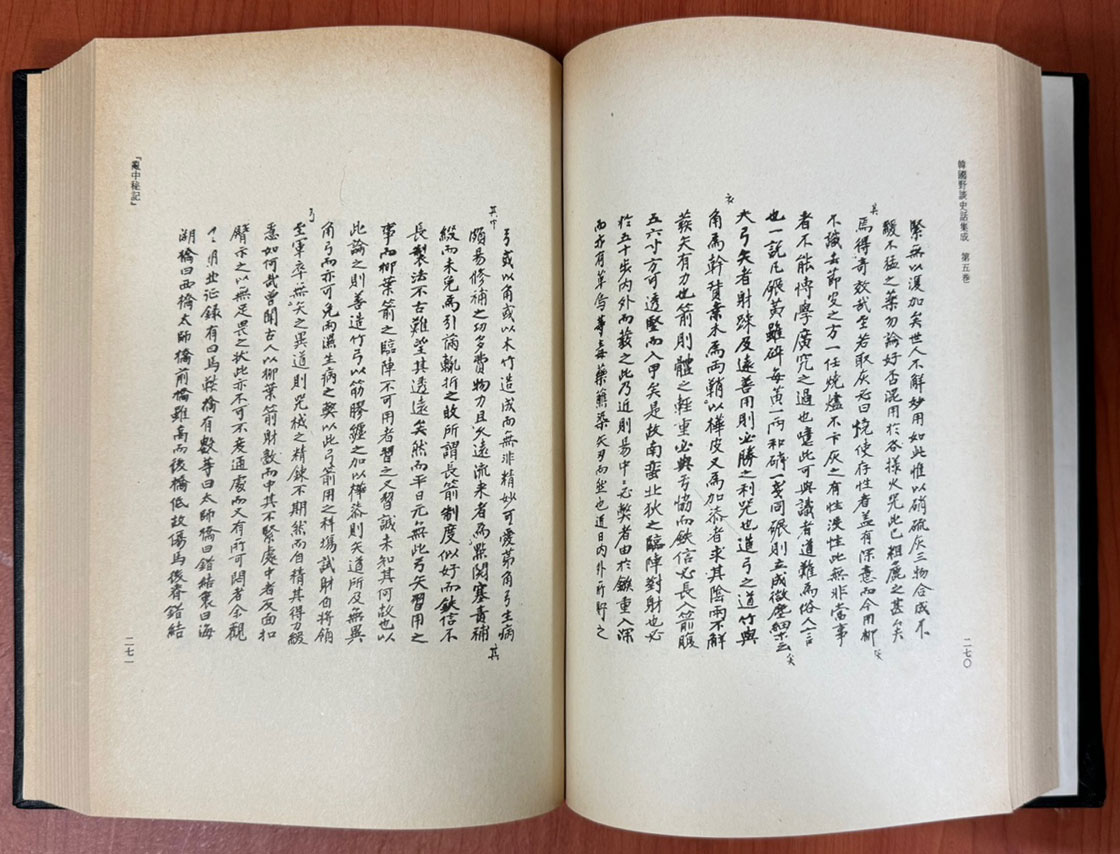 韓國野談史話集成 第五卷
緊無以復加矣世人不解妙用如此惟以硝硫灰三物合成不
駿不猛之藥勿論好否混用於各樣火咒此已粗麗之甚矣
焉得奇效哉至若取灰必曰燒使存性者盖有深意而今用柳
不識去節皮之方一任燒爐不卞灰之有性沒性此無非常事
者不能博學廣究之過也噫此可與識者道難為俗人言
也一說凡硍黃雖碎每黃一兩和磷一戔同碾則立成微塵細末云
大弓矢者財疎及遠善用則必勝之利咒也造弓之道竹與
角為幹質桑木為兩鞘以樺皮又為加柒者求其陰雨不解
莢矢有力也箭則體之輕重必與弓恊而鉄信必長入箭腹
五六寸方可透堅而入甲矣是故南蛮北狄之臨陣對財也必
於五十步內外而發之此乃近則易中中必斃者由於鏃重入深
而亦有草烏等毒藥薰染矢刃而然也近日內外所貯之
二七〇
弓或以角或以木竹造成而無非精妙可愛苐角弓生病
頗易修補之功多費物力且矢遠流来者為鼎関塞責補
綴而未免為引滿輒折之敗所謂長箭制度似好而鉄信不
長製法不古難望其透遠矣然而平日元無此弓矢習用之
事而柳葉箭之臨陣不可用者習之又習誠未知其何故也以
此論之則善造竹弓以筋膠纒之加以樺柒則矢道所及無異
角弓而亦可免雨濕生病之弊以此弓箭用之科塲試財自將領
至軍卒無矢之異道則咒械之精鍊不期然而自精其得力緩
急如何哉曾聞古人以柳葉箭財敵而中其不緊處中者反面扣
臂示之以無足畏之狀此亦不可不疫通處而又有所可問者余觀
明北征錄有曰馬鞍橋有數等曰太師橋曰錯結裹曰海
湖橋曰西橋太師橋前橋雖高而後橋低故傷馬後脊錯結
『亂中秘記』
二七一